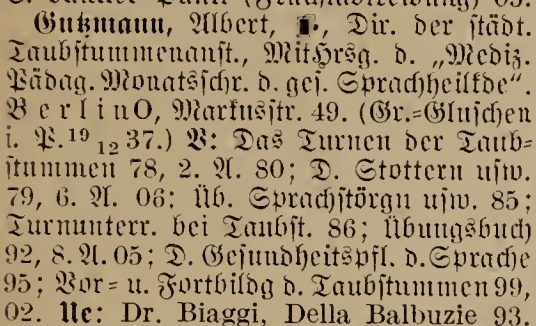 Gutzmann, Albert, Dir. der städt.
Taubstummenanst., MitHrsg. d. „Mediz.
Pädag. Monatsschr. d. ges. Sprachheilkde“.
BerlinO, Markusstr. 49. (Gr.=Gluschen
i. P. 19 12 37.) V: Das Turnen der Taub=
stummen 78, 2. A. 80; D. Stottern usw.
79, 6. A. 06; Üb. Sprachstörgn usw. 85;
Turnunterr. bei Taubst. 86; Übungsbuch
92, 8. A. 05; D. Gesundheitspfl. d. Sprache
95; Vor= u. Fortbildg d. Taubstummen 99,
02. Ue: Dr. Biaggi, Della Balbuzie 93.